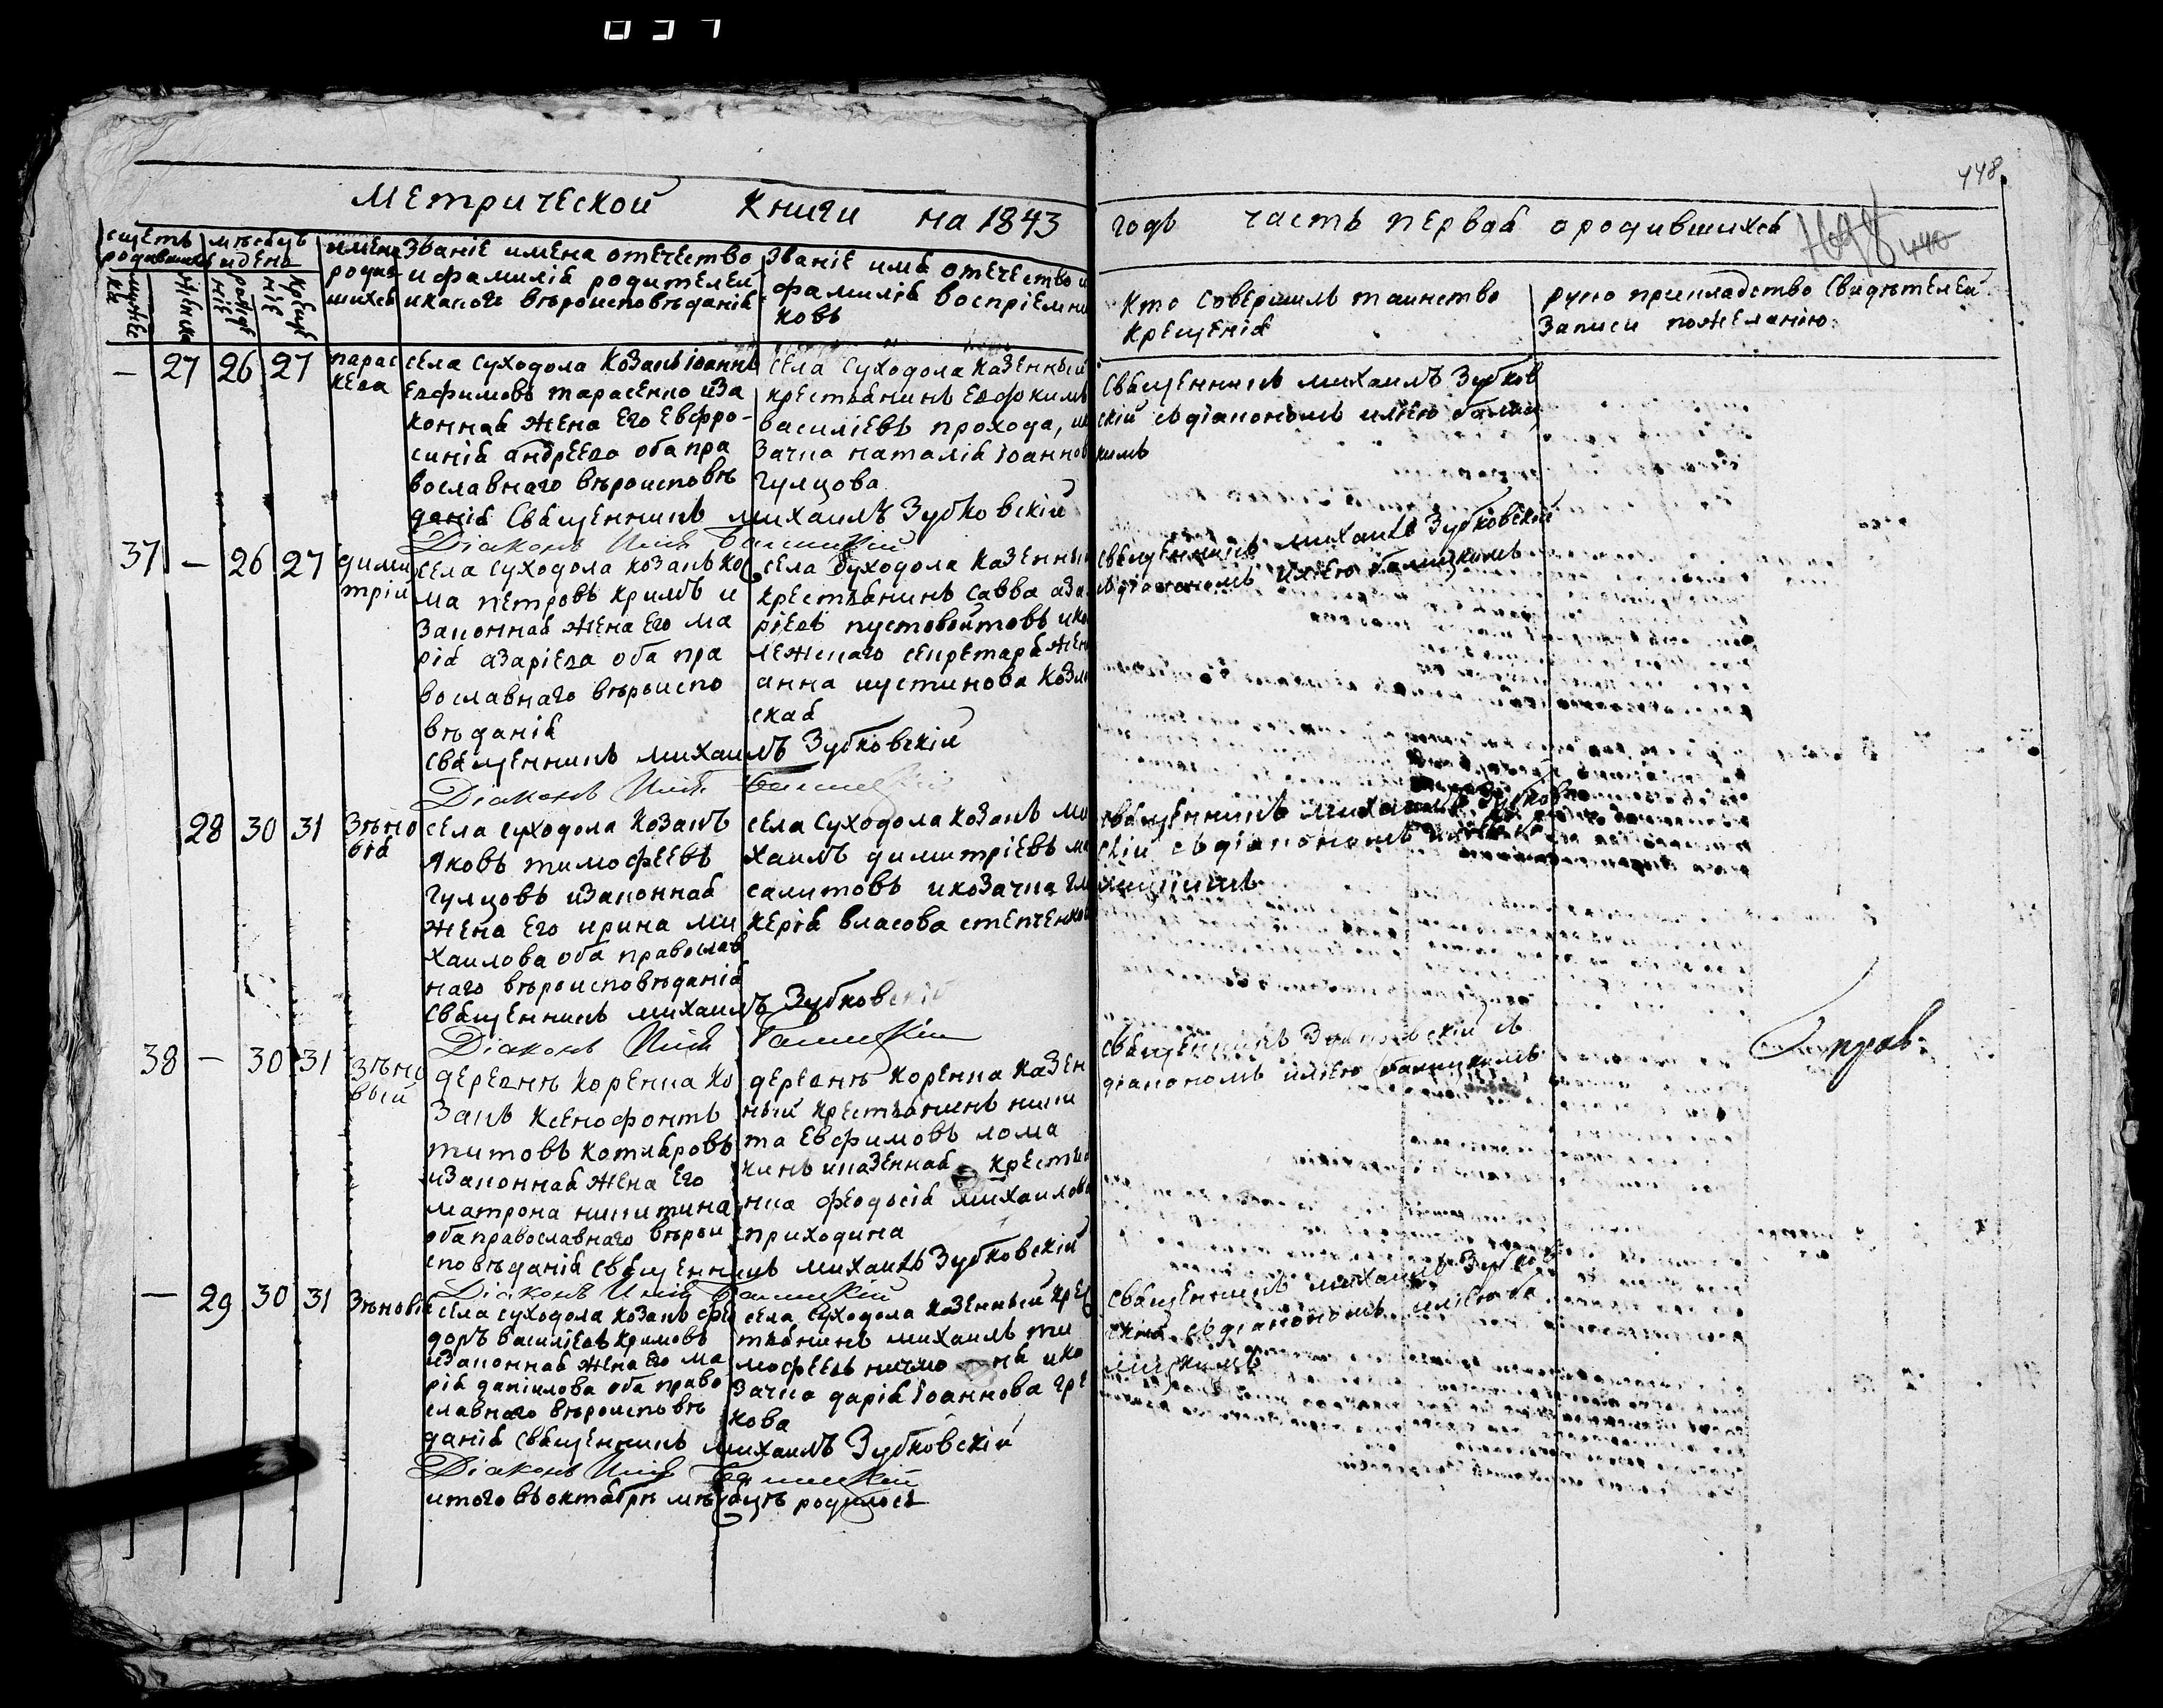 037
448
Метрической Книги на 1843
годъ часть первая о родившихся
1698 440
счетъ родившихся
мѣсяцъ и день
мужеска
женска
рожденіе
крещеніе
имена родившихся
Званіе имена отечество
и фамилія родителей
и какого вѣроисповѣданія
Званіе имя отечество и
фамилія воспріемни
ковъ
Кто совершилъ таинство
крещенія
рукоприкладство свидѣтелей
записи по желанію
— 27 26 27
парас
кева
села суходола козакъ іоаннъ
Евфимовъ тарасенко и за
конная жена его Евфро-
синія андреева оба пра
вославнаго вѣроисповѣ
данія Священникъ михаилъ Зубковскій
Діаконъ Илія Балицкій
села суходола казенный
крестьянинъ Евфимъ
василіевъ прохода, и
зачка наталія іоаннов
гулцова
Священникъ михаилъ Зубков
скій съ діакономъ иліею балиц
кимъ
37 — 26 27
дими
трій
села суходола козакъ ко
ма петровъ кримъ и
законная жена его ма
рія азаріева оба пра
вославнаго вѣроиспо
вѣданія
священникъ михаилъ Зубковскій
Діаконъ Илія Балицкій
села суходола казенны
крестьянинъ савва аза
ріевъ пустовойтовъ и ко
лежскаго секретаря жен
анна иустинова козл
ская
священникъ михаилъ Зубковскій
съ діакономъ иліею балицкимъ
28 30 31
Зѣно
вія
села суходола козакъ
Яковъ тимофеевъ
гулцовъ и законная
жена его ирина ми
хаилова оба православ
наго вѣроисповѣданія
священникъ михаилъ Зубковскій
Діаконъ Илія Балицкій
села суходола козакъ ми
хаилъ димитріевъ ма
салитовъ и козачка гли
керія власова степченков
священникъ михаилъ Зубков
скій съ діакономъ
38 — 30 31
Зѣно
вій
деревнѣ коренка ко
закъ ксенофонтъ
титовъ котляровъ
и законная жена его
матрона никитина
оба православнаго вѣрои
сповѣданія священникъ михаилъ Зубковскій
Діаконъ Илія Балицкій
деревнѣ коренка казен
ный крестьянинъ ники
та Евфимовъ лома
кинъ и казенная крестья
нка феодосія михаилова
приходина
священникъ Зубковскій съ
діакономъ иліею балицкимъ
Справ:
— 29 30 31
Зѣновія
села суходола козакъ фео
доръ василіевъ кримовъ
и законная жена его ма
рія даніилова оба право
славнаго вѣроисповѣ
данія священникъ михаилъ Зубковскій
Діаконъ Илія Балицкій
села суходола казенный крес
тьянинъ михаилъ ти
мофеевъ и ко
зачка дарія іоаннова гре
кова
священникъ михаилъ Зубков
скій съ діакономъ иліею ба
лицкимъ
итого въ октябрѣ мѣсяцѣ родилось